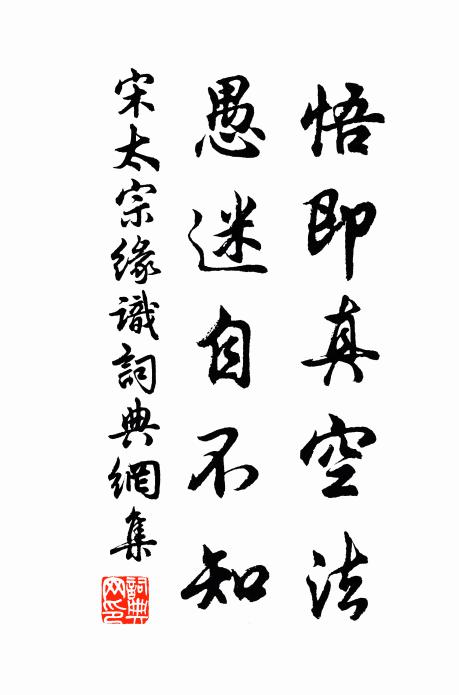 悟即真空法
愚迷自不知
宋太宗緣識詞典網集
詞典網印